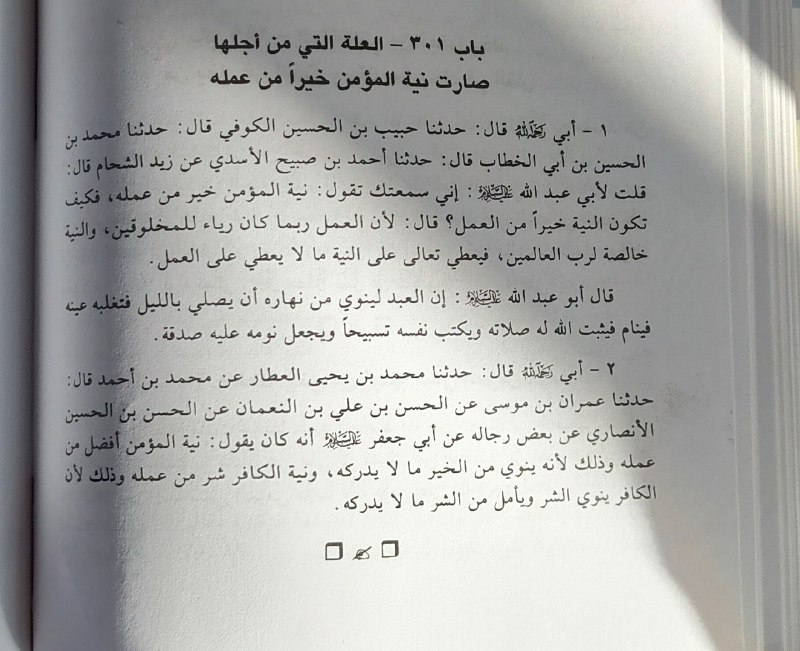 باب ٣٠١ - العلة التي من أجلها
صارت نية المؤمن خيراً من عمله
١ - أبي رحمه الله قال: حدثنا حبيب بن الحسين الكوفي قال: حدثنا محمد بن
الحسين بن أبي الخطاب قال: حدثنا أحمد بن صبيح الأسدي عن زيد الشحام قال:
قلت لأبي عبد الله عليه السلام: إني سمعتك تقول: نية المؤمن خير من عمله، فكيف
تكون النية خيراً من العمل؟ قال: لأن العمل ربما كان رياء للمخلوقين، والنية
خالصة لرب العالمين، فيعطي تعالى على النية ما لا يعطي على العمل.
قال أبو عبد الله عليه السلام: إن العبد لينوي من نهاره أن يصلي بالليل فتغلبه عينه
فينام فيثبت الله له صلاته ويكتب نفسه تسبيحاً ويجعل نومه عليه صدقة.
٢ - أبي رحمه الله قال: حدثنا محمد بن يحيى العطار عن محمد بن أحمد قال:
حدثنا عمران بن موسى عن الحسن بن علي بن النعمان عن الحسن بن الحسين
الأنصاري عن بعض رجاله عن أبي جعفر عليه السلام أنه كان يقول: نية المؤمن أفضل من
عمله وذلك لأنه ينوي من الخير ما لا يدركه، ونية الكافر شر من عمله وذلك لأن
الكافر ينوي الشر ويأمل من الشر ما لا يدركه.